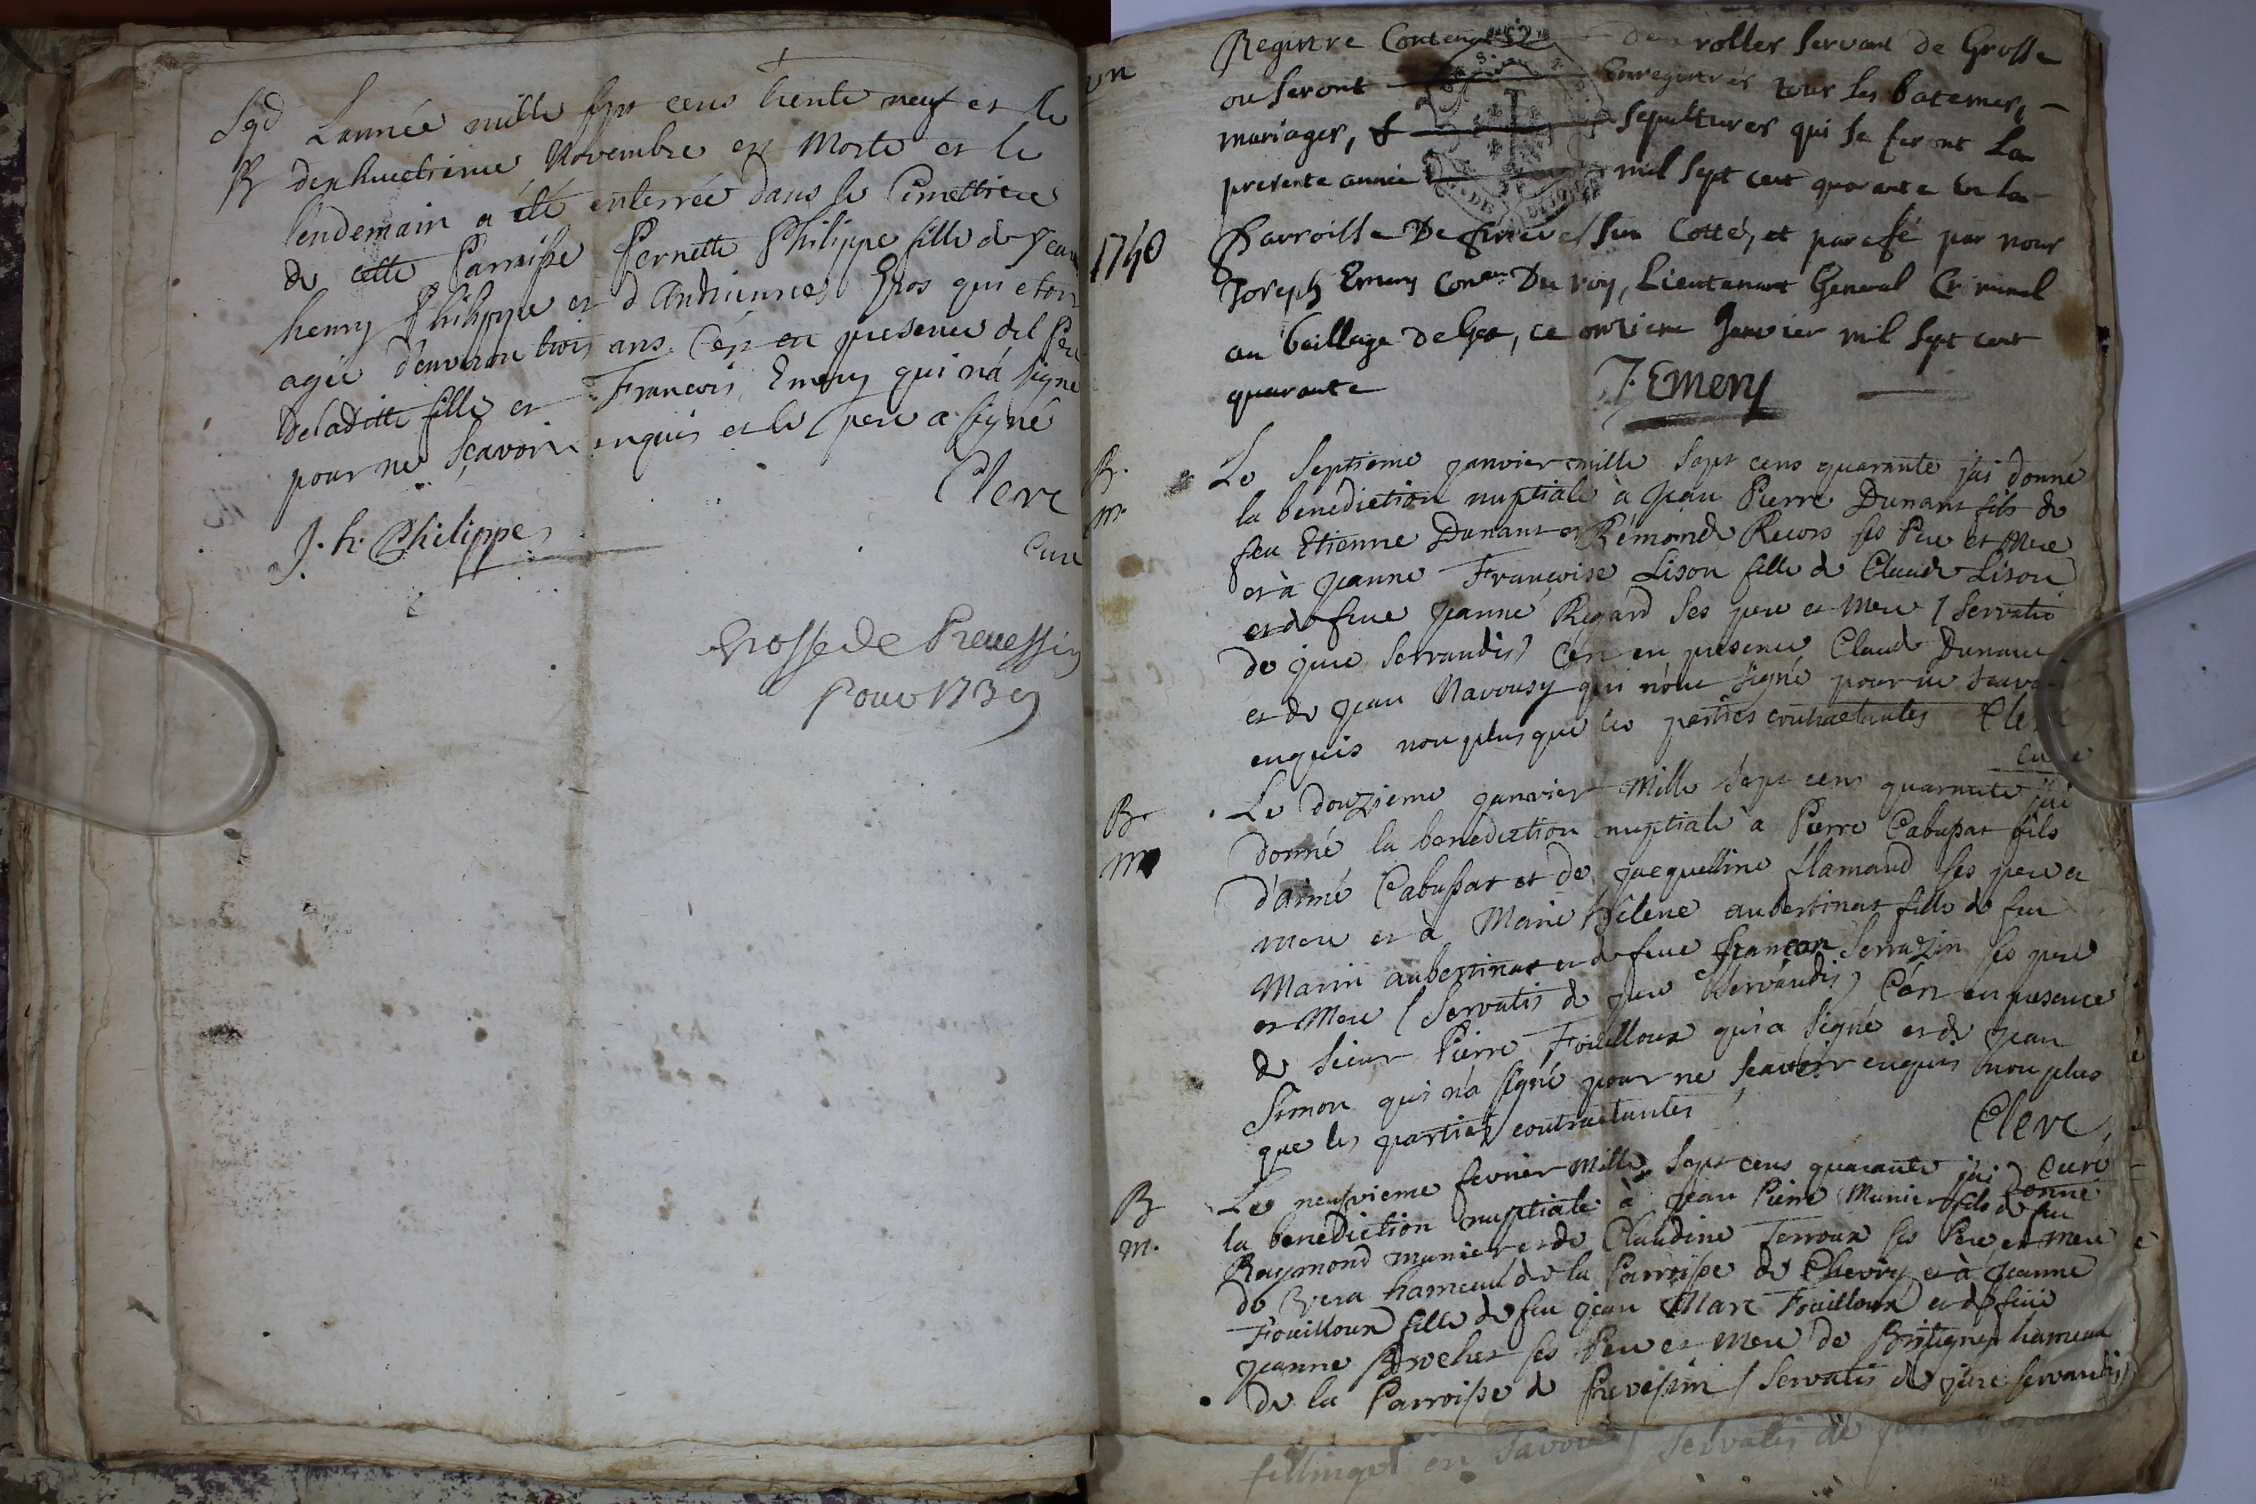 Sqd
R
L'année mille sept cens trente neuf et le
dix huictieme Novembre est Morte et le
lendemain a été enterrée dans le Cimettiere
de cette Parroisse Pernette Philippe fille de Jean
henry Philippe et d'Andrienne Gros qui etoit
agée d'environ trois ans C'est en presence del Pere
deladitte fille et François Emery qui n'a signé
pour ne sçavoir enquis et le pere a signé
Clerc
J. h. Philippe
Curé
Grosse de Prevessin
Pour 1739
un
Registre Contenant deux rolles servant de Grosse
ou seront Enregistrés tous les batemes,
mariages, & sepultures qui se feront La
presente année mil sept cent quarante en la
Parroisse De Prevessin Cotté, et parafé par nous
1740
Joseph Emery Conser Du roy, Lieutenant General Criminel
au bailliage de Gex, ce onzieme Janvier mil sept cent
quarante
J. Emery
B.
m.
Le septieme janvier mille sept cens quarante j'ai donné
la benediction nuptiale à Jean Pierre Dunant fils de
feu Etienne Dunant et Rémonde Recors ses Pere et Mere
et à Jeanne Françoise Lison fille de Claude Lison
et de feue Jeanne Regard ses pere et Mere / servatis
de jure servandis) C'est en presence Claude Dunant
et de Jean Navousy qui n'ont signé pour ne sçavoir
enquis non plus que les parties contractantes Clerc
Curé
B
m
Le douzieme janvier Mille sept cens quarante j'ai
donné la benediction nuptiale à Pierre Cabussat fils
d'aimé Cabussat et de Jacqueline flamand ses pere et
mere et à Marie hélene aubertinat fille de feu
Marin aubertinat et de feue françoise Serrazin ses pere
et Mere (Servatis de jure Servandis) C'est en presence
de Sieur Pierre Fouilloux qui a signé et de Jean
Simon qui n'a signé pour ne sçavoir enquis non plus
que les parties contractantes
Clerc
Curé
B
m.
Le neufvieme fevrier Mille Sept cens quarante j'ai donné
la benediction nuptiale à Jean Pierre Munier fils de feu
Raymond munier et de Claudine Terroux ses Pere et mere
de Vera hameau de la Parroisse de Chevry et à Jeanne
Fouilloux fille de feu Jean Marc Fouilloux et de feüe
Jeanne Brochet ses Pere et Mere de Bretigny hameau
de la Parroisse de Prevessin / Servatis de jure servandis)
fillinges en Savoie / servatis de